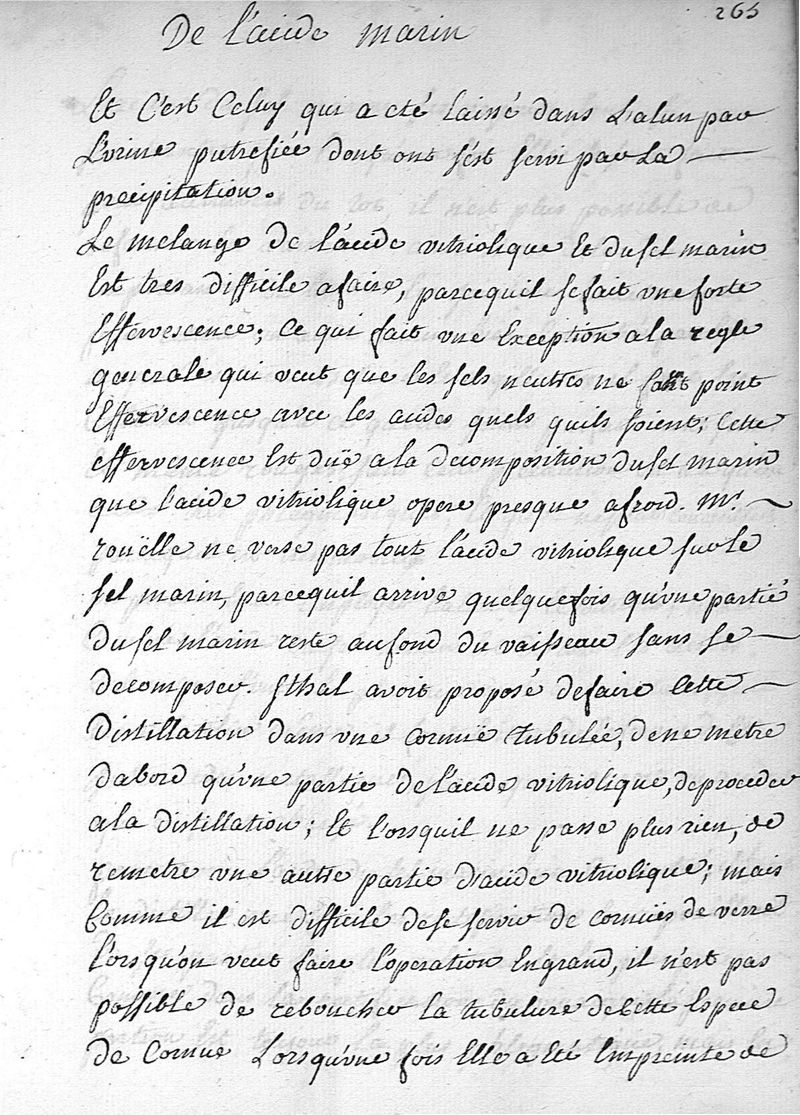 265
De l'acide marin
Et C'est Celuy qui a eté laissé dans L'alun par
L'urine putrefiée dont ont s'est servi par La
precipitation.
Le melange de l'acide vitriolique Et du sel marin
Est tres difficile a faire, parcequil se fait vne forte
Effervescence; Ce qui fait vne Exception a la regle
generale qui veut que les sels neutres ne font point
Effervescence avec les acides quels quils soient; Cette
effervescence Est duë a la decomposition du sel marin
que l'acide vitriolique opere presque a froid. Mr.
rouëlle ne verse pas tout l'acide vitriolique sur le
sel marin, parcequil arrive quelquefois qu'vne partié
du sel marin reste au fond du vaisseau sans se
decomposer. Sthal avoit proposé de faire Cette
Distillation dans vne Cornuë tubulée, de ne metre
dabord qu'vne partie de l'acide vitriolique, de proceder
a la distillation; Et lorsquil ne passe plus rien, de
remetre vne autre partie d'acide vitriolique; mais
Comme il est difficile de se servir de cornuës de verre
Lorsqu'on veut faire l'operation En grand, il n'est pas
possible de reboucher la tubulure de Cette Espece
de Cornue Lorsqu'vne fois Elle a Eté Empreinte de